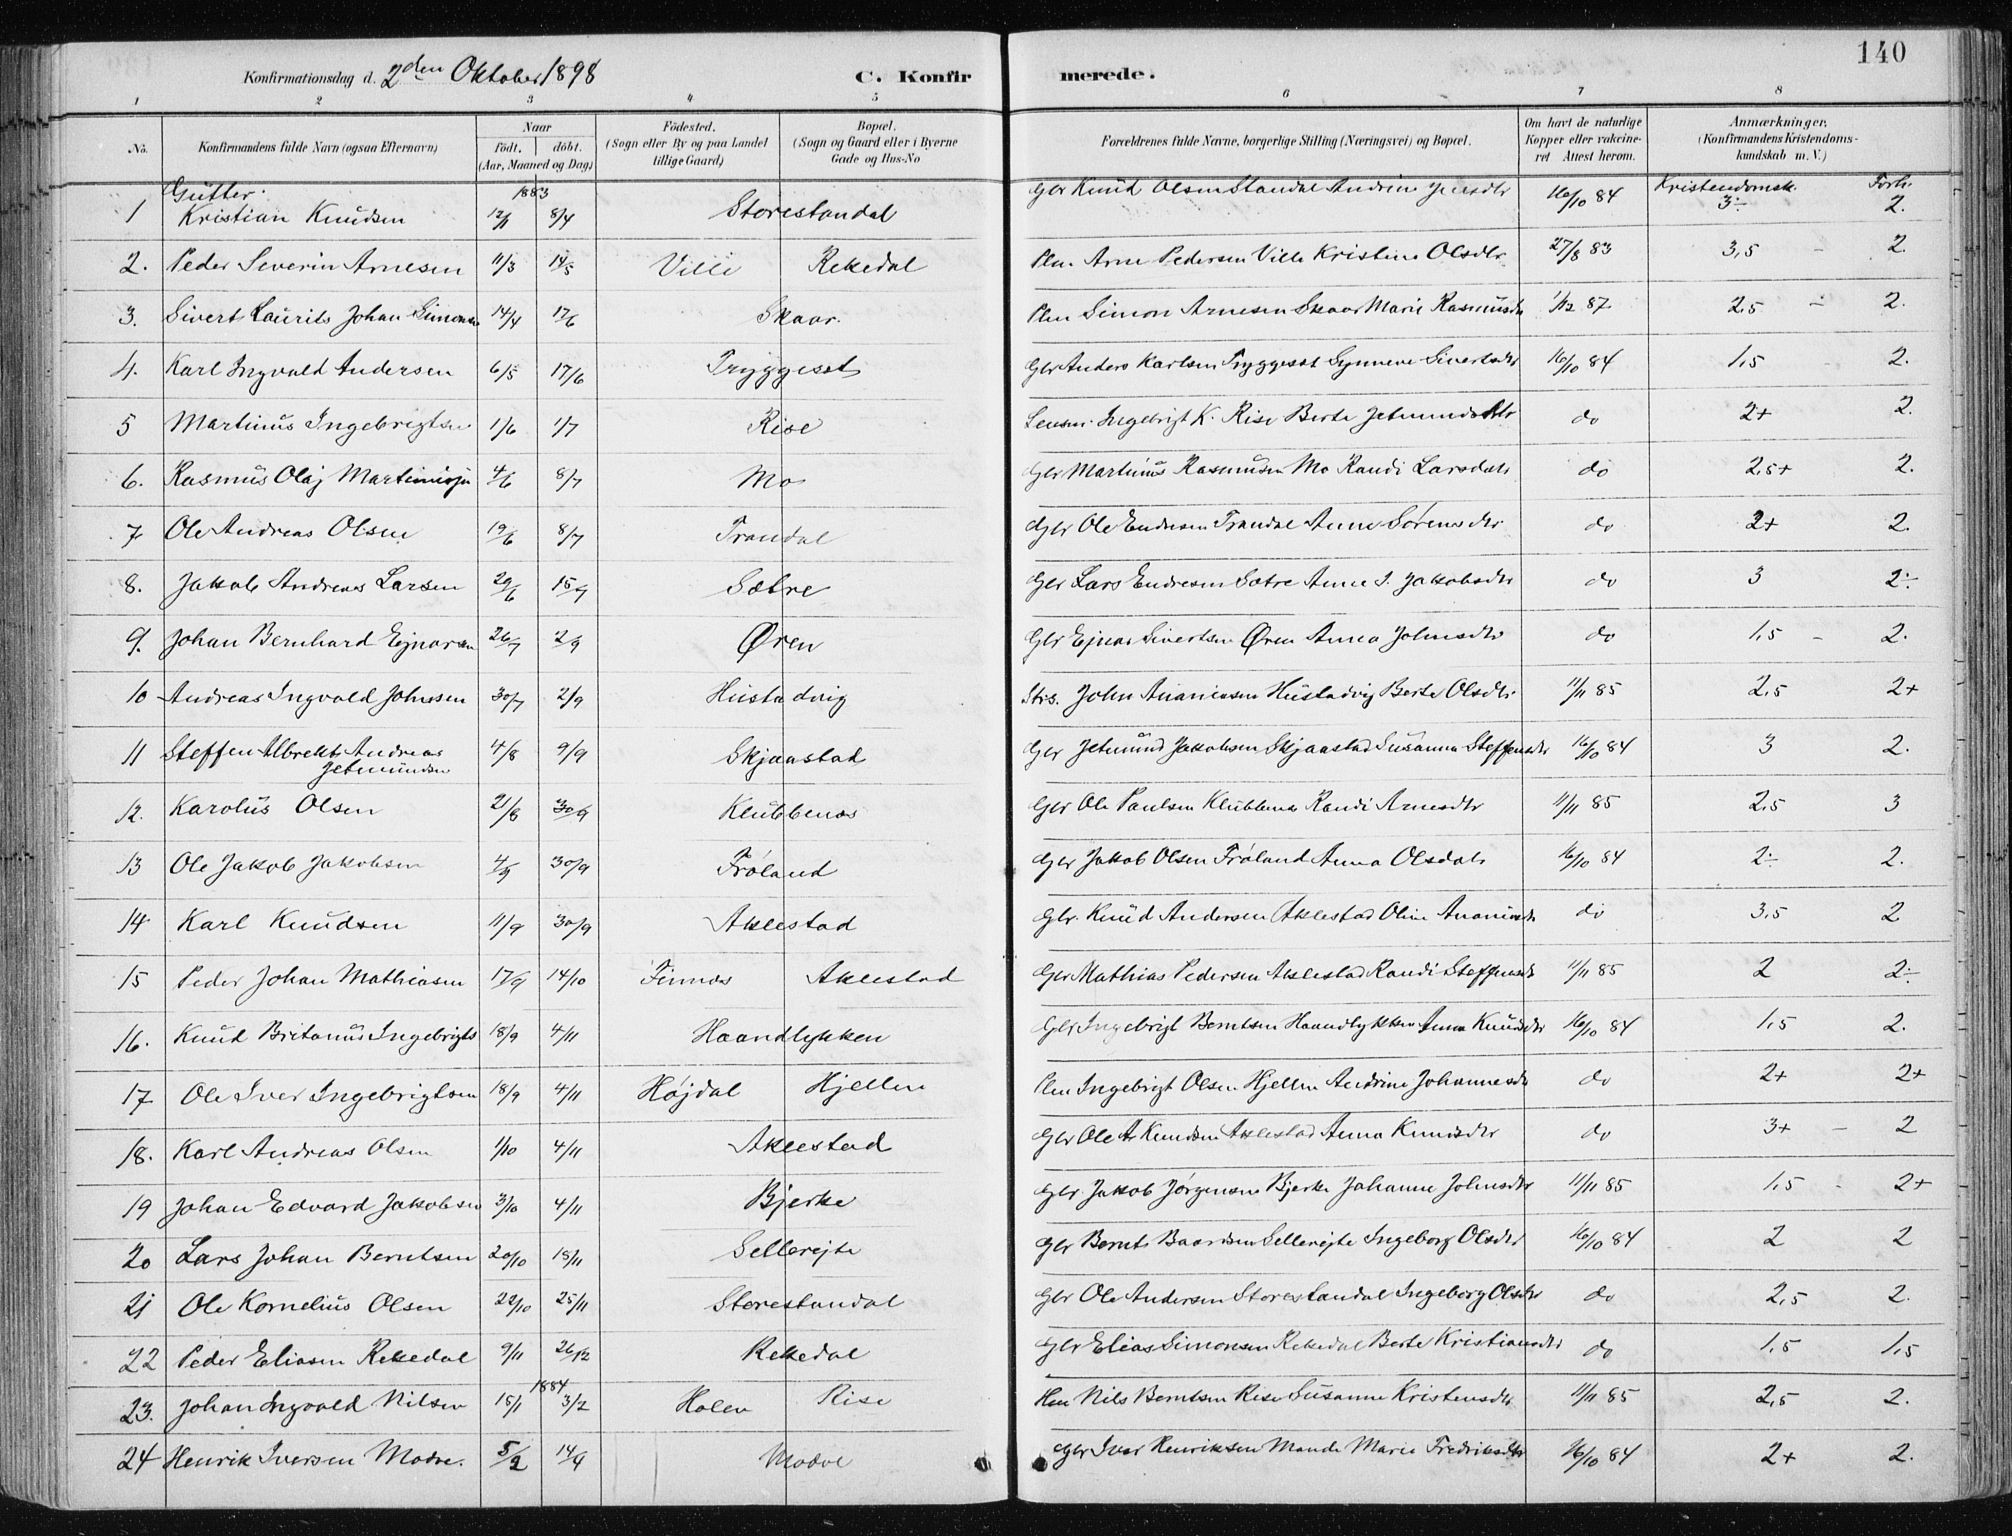 140
Konfirmationsdag d. 2den Oktober 1898 C. Konfirmerede.
1 2 3 4 5 6 7 8
No. Konfirmandens fulde Navn (ogsaa Efternavn) Naar födt. döbt. (Aar, Maaned og Dag) Födested. (Sogn eller By og paa Landet tillige Gaard) Bopæl. (Sogn og Gaard eller i Byerne Gade og Hus-No Forældrenes fulde Navne, borgerlige Stilling (Næringsvei) og Bopæl. Om havt de naturlige Kopper eller vakcineret Attest herom. Anmærkninger. (Konfirmandens Kristendomskundskab m. V.)
Gutter. 1883 Kristendomsk. Forh.
1 Kristian Knudsen 12/1 8/4 Storestandal Gbr Knud Olsen Standal Andrine Jensdtr 16/10 84 3÷ 2.
2. Peder Severin Arnesen 11/3 14/5 Ville Rekedal Plm. Arne Pedersen Ville Kristine Olsdtr 27/8 83 3,5 - 2.
3. Sivert Laurits Johan Simonsen 14/4 17/6 Skaar. Plm Simon Arnesen Skaar Marie Rasmusdtr 1/12 87 2,5 - 2.
4. Karl Ingvald Andersen 6/5 17/6 Tryggeset Gbr Anders Karlsen Tryggeset Synneve Sivertsdtr 16/10 84 1,5 - 2.
5 Martinus Ingebrigtsen 1/6 1/7 Rise Lensm. Ingebrigt K. Rise Berte Jetmundsdtr do 2+ 2.
6. Rasmus Olaj Martinusen 4/6 8/7 Mo Gbr Martinus Rasmusen Mo Randi Larsdatr do 2,5+ 2.
7 Ole Andreas Olsen 19/6 8/7 Trandal Gbr Ole Endresen Trandal Anne Sørensdtr do 2+ 2.
8. Jakob Andreas Larsen 29/6 15/7 Sætre Gbr Lars Endresen Sætre Anne S. Jakobsdtr do 3 2÷
9. Johan Bernhard Ejnarsen 26/7 2/9 Øren Gbr Ejnar Sivertsen Øren Anna Johnsdtr do 1,5 - 2.
10 Andreas Ingvald Johnsen 30/7 2/9 Hustadvig Strs. John Ananiasen Hustadvig Berte Olsdtr 11/11 85 2,5 2+
11 Steffen Albrekt Andreas Jetmundsen 4/8 9/9 Skjaastad Gbr Jetmund Jakobsen Skjaastad Susanna Steffensdtr 16/10 84 3 2.
12. Karolus Olsen 21/8 30/9 Klubbenæs Gbr Ole Paulsen Klubbenæs Randi Arnesdtr 11/11 85 2,5 3
13 Ole Jakob Jakobsen 4/9 30/9 Frøland Gbr Jakob Olsen Frøland Anna Olsdatr 16/10 84 2÷ 2.
14 Karl Knudsen 11/9 30/9 Aklestad Gbr. Knud Andersen Aklestad Oline Ananiasdtr do 3,5 2
15 Peder Johan Mathiasen 17/9 14/10 Finnæs Aklestad Gbr Mathias Pedersen Aklestad Randi Steffensdtr 11/11 85 2 2÷
16. Knud Britanus Ingebrigts 18/9 4/11 Haandlykken Gbr Ingebrigt Berntsen Haandlykken Anna Knudsdtr 16/10 84 1,5 2.
17 Ole Iver Ingebrigtsen 18/9 4/11 Højdal Hjellen Plm Ingebrigt Olsen Hjellen Andrine Johannesdtr do 2+ 2+
18. Karl Andreas Olsen 1/10 4/11 Aklestad Gbr Ole A Knudsen Aklestad Anna Knudsdtr do 3+ - 2
19 Johan Edvard Jakobsen 3/10 4/11 Bjerke Gbr Jakob Jørgensen Bjerke Johanne Johnsdtr 11/11 85 1,5 - 2+
20 Lars Johan Berntsen 20/10 18/11 Sellerejte Gbr Bernt Baardsen Sellerejte Ingeborg Olsdtr 16/10 84 2 2
21 Ole Kornelius Olsen 22/10 25/11 Storestandal Gbr Ole Andersen Storestandal Ingeborg Olsdtr do 2,5 2.
22 Peder Eliasen Rekedal 9/11 26/12 Rekedal Gbr Elias Simonsen Rekedal Berte Kristiansdtr do 1,5 1,5
1884
23. Johan Ingvald Nilsen 15/1 3/2 Holen Rise Hm Nils Berntsen Rise Susanne Kristensdtr 11/11 85 2,5 2.
24 Henrik Iversen Modve. 5/2 14/4 Modve Gbr Iver Henriksen Maude Marie Fredriksdtr 16/10 84 2+ 2.